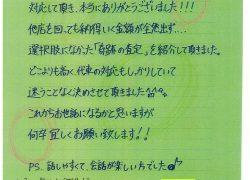 対応して頂き、本当にありがとうございました!!!
他店を回っても納得いく金額が全然出ず....
選択肢になかった「奇跡の査定」を紹介して頂きました。
どこよりも高く、代車の対応もしっかりしていて
迷うことなく決めさせて頂きました^^
これからお世話になるかと思いますが
何卒宜しくお願い致します!!
PS. 話しやすくて、会話が楽しい方でした♪